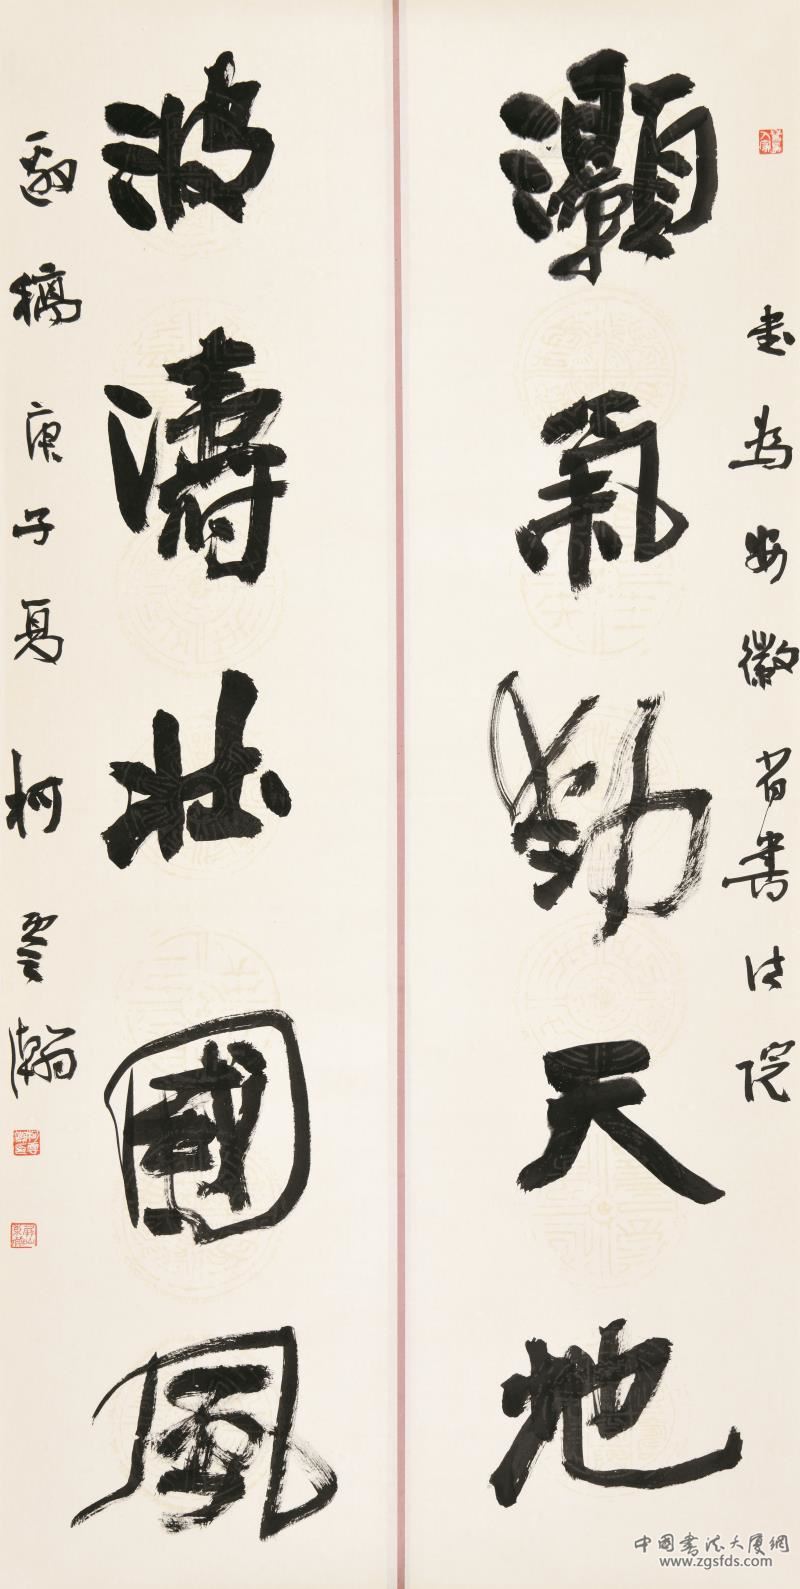 書為安徽省書法院
灝氣天地
波濤壯國風
邀稿庚子夏柯雲瀚
中國書法大厦網
www.zgsfds.com